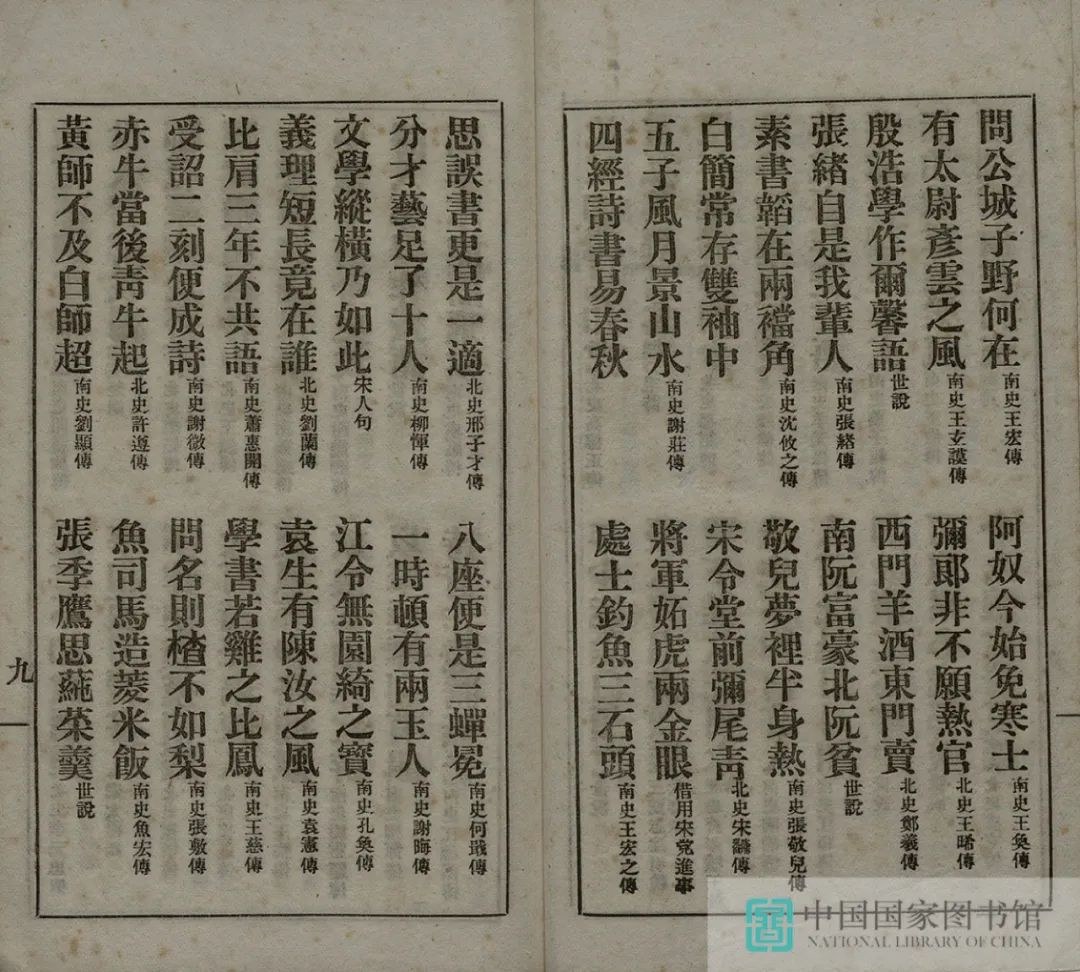 問公城子野何在 南史王宏傳 阿奴今始免寒士 南史王奐傳
有太尉彥雲之風 南史王玄謨傳 彌郎非不願熱官 北史王晞傳
殷浩學作爾馨語 世說 西門羊酒東門賣 北史鄭羲傳
張緒自是我輩人 南史張緒傳 南阮富豪北阮貧 世說
素書韜在兩襠角 南史沈攸之傳 敬兒夢裡半身熱 南史張敬兒傳
白簡常存雙袖中 宋令堂前彌尾青 北史宋翻傳
五子風月景山水 南史謝莊傳 將軍妬虎兩金眼 借用宋党進事
四經詩書易春秋 處士釣魚三石頭 南史王宏之傳
思誤書更是一適 北史邢子才傳 八座便是三蟬冕 南史何戢傳
分才藝足了十人 南史柳惲傳 一時頓有兩玉人 南史謝晦傳
文學縱橫乃如此 宋人句 江令無園綺之實 南史孔奐傳
義理短長竟在誰 北史劉蘭傳 袁生有陳汝之風 南史袁憲傳
比肩三年不共語 南史蕭惠開傳 學書若雞之比鳳 南史王慈傳
受詔二刻便成詩 南史謝徵傳 問名則楂不如梨 南史張敷傳
赤牛當後青牛起 北史許遵傳 魚司馬造菱米飯 南史魚宏傳
黃師不及白師超 南史劉顯傳 張季鷹思蒓菜羹 世說
九
中国国家图书馆
NATIONAL LIBRARY OF CHINA